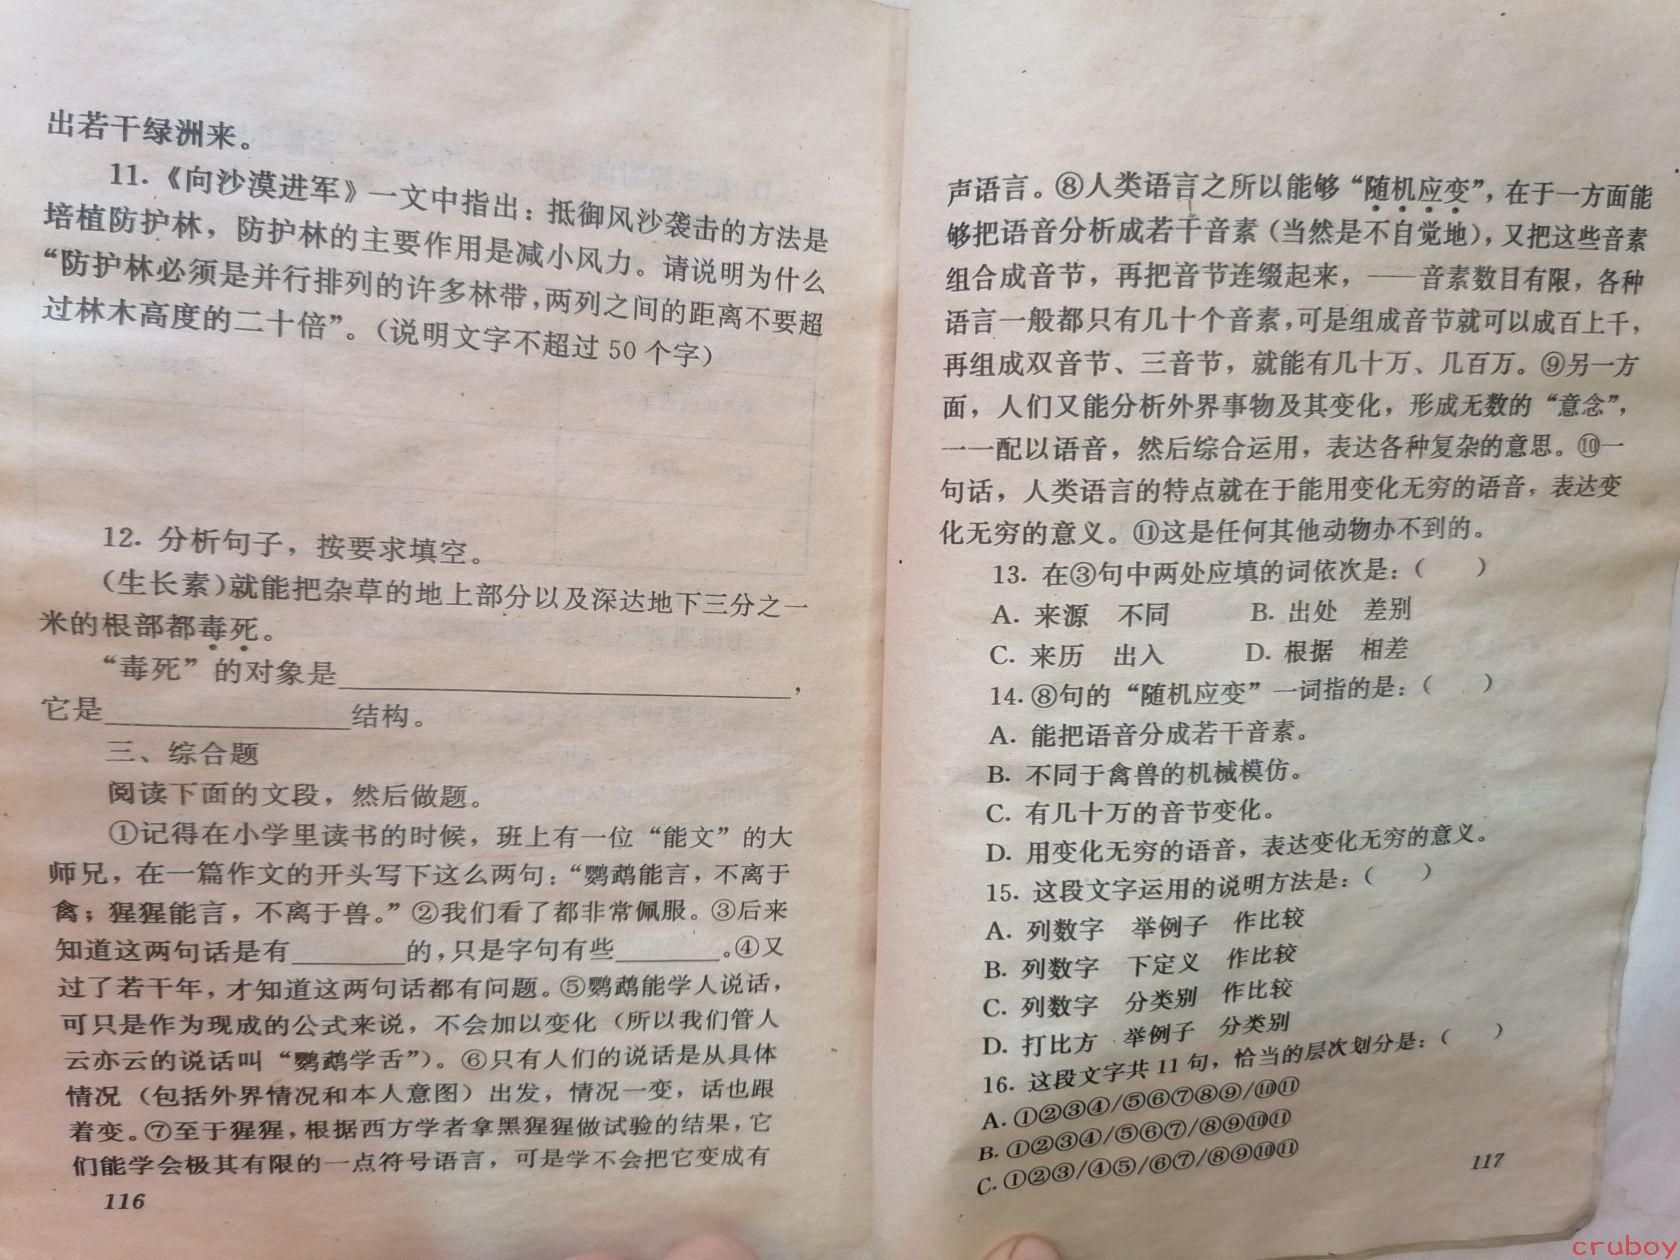 出若干绿洲来。
11.《向沙漠进军》一文中指出：抵御风沙袭击的方法是
培植防护林，防护林的主要作用是减小风力。请说明为什么
“防护林必须是并行排列的许多林带，两列之间的距离不要超
过林木高度的二十倍”。（说明文字不超过50个字）
12. 分析句子，按要求填空。
（生长素）就能把杂草的地上部分以及深达地下三分之一
米的根部都毒死。
“毒死”的对象是________________，
它是________________结构。
三、综合题
阅读下面的文段，然后做题。
①记得在小学里读书的时候，班上有一位“能文”的大
师兄，在一篇作文的开头写下这么两句：“鹦鹉能言，不离于
禽；猩猩能言，不离于兽。”②我们看了都非常佩服。③后来
知道这两句话是有________的，只是字句有些________。④又
过了若干年，才知道这两句话都有问题。⑤鹦鹉能学人说话，
可只是作为现成的公式来说，不会加以变化（所以我们管人
云亦云的说话叫“鹦鹉学舌”）。⑥只有人们的说话是从具体
情况（包括外界情况和本人意图）出发，情况一变，话也跟
着变。⑦至于猩猩，根据西方学者拿黑猩猩做试验的结果，它
们能学会极其有限的一点符号语言，可是学不会把它变成有
116
声语言。⑧人类语言之所以能够“随机应变”，在于一方面能
够把语音分析成若干音素（当然是不自觉地），又把这些音素
组合成音节，再把音节连缀起来，——音素数目有限，各种
语言一般都只有几十个音素，可是组成音节就可以成百上千，
再组成双音节、三音节，就能有几十万、几百万。⑨另一方
面，人们又能分析外界事物及其变化，形成无数的“意念”，
一一配以语音，然后综合运用，表达各种复杂的意思。⑩一
句话，人类语言的特点就在于能用变化无穷的语音，表达变
化无穷的意义。⑪这是任何其他动物办不到的。
13. 在③句中两处应填的词依次是：（　　）
A. 来源　不同　　　B. 出处　差别
C. 来历　出入　　　D. 根据　相差
14. ⑧句的“随机应变”一词指的是：（　　）
A. 能把语音分成若干音素。
B. 不同于禽兽的机械模仿。
C. 有几十万的音节变化。
D. 用变化无穷的语音，表达变化无穷的意义。
15. 这段文字运用的说明方法是：（　　）
A. 列数字　举例子　作比较
B. 列数字　下定义　作比较
C. 列数字　分类别　作比较
D. 打比方　举例子　分类别
16. 这段文字共11句，恰当的层次划分是：（　　）
A. ①②③④/⑤⑥⑦⑧⑨/⑩⑪
B. ①②③④/⑤⑥⑦/⑧⑨⑩⑪
C. ①②③/④⑤/⑥⑦/⑧⑨⑩⑪
117
cruboy